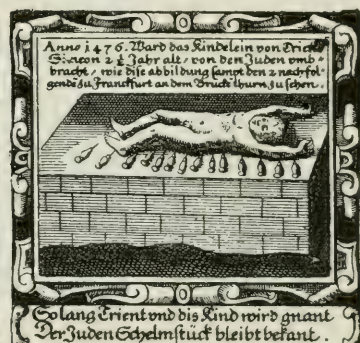 Anno 1476. Ward das Kindelein von Trient
Simeon 2 ½ Jahr alt / von den Juden vmb=
bracht / wie dise abbildung sampt den 2 nachfol=
gende zu Franckfurt an dem Bruck thurn zu sehen.
So lang Trient vnd dis Kind wird gnant
Der Juden Schelmstück bleibt bekant.